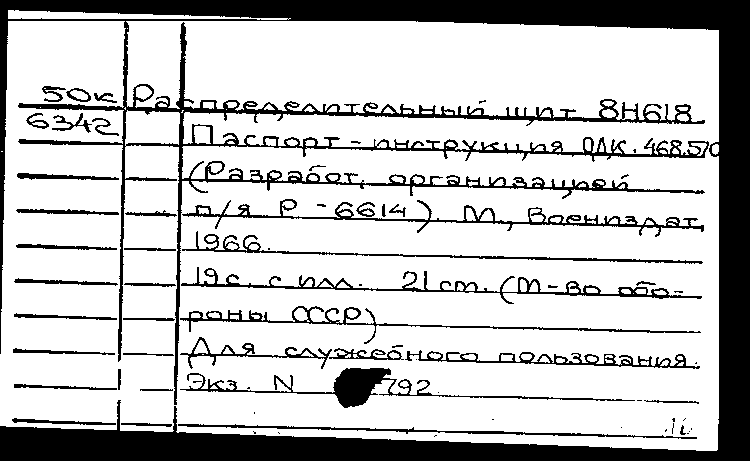 50к Распределительный щит 8Н618
6342 Паспорт-инструкция ОДК.468.570
(Разработ. организацией
п/я Р-6614). М., Воениздат,
1966.
19с. с илл. 21 cm. (М-во обо-
роны СССР)
Для служебного пользования.
Экз. N 792